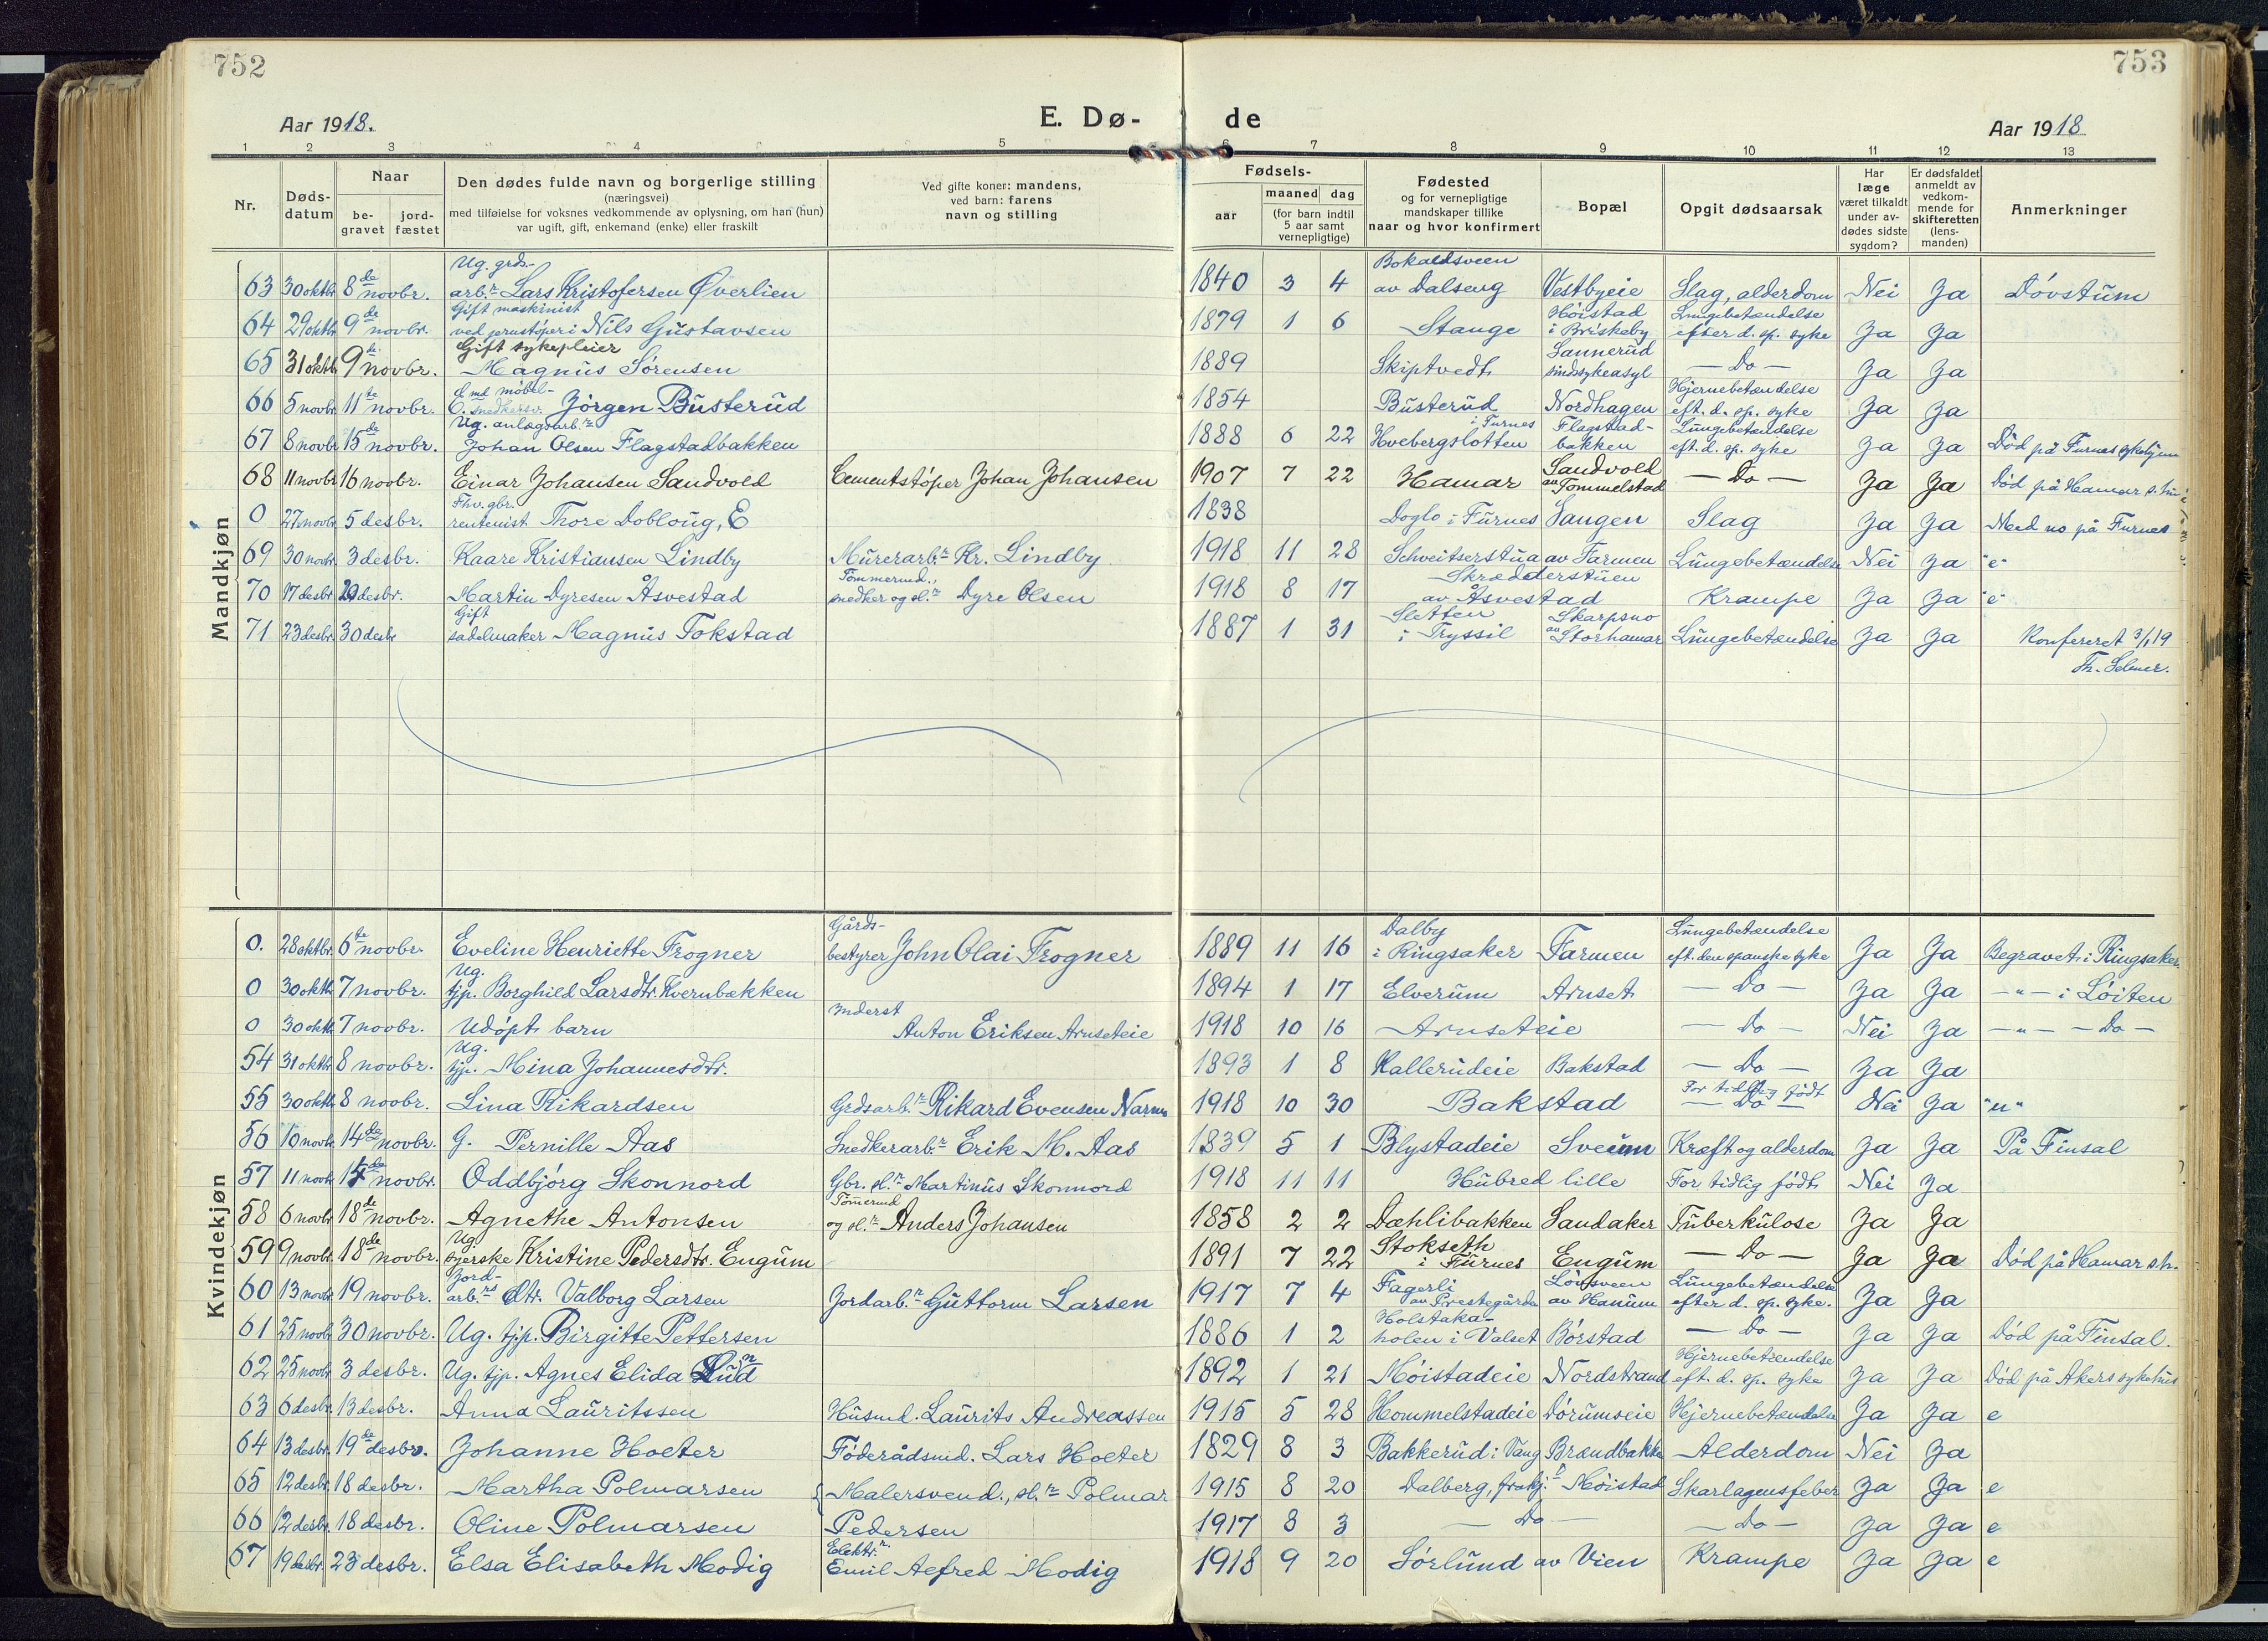 752
753
Aar 1918.
E. Dø-
de
Aar 1918
1 2 3 4 5 6 7 8 9 10 11 12 13
Nr.
Døds-
datum
Naar
be-
gravet
jord-
fæstet
Den dødes fulde navn og borgerlige stilling
(næringsvei)
med tilføielse for voksnes vedkommende av oplysning, om han (hun)
var ugift, gift, enkemand (enke) eller fraskilt
Ved gifte koner: mandens,
ved barn: farens
navn og stilling
Fødsels-
aar
maaned dag
(for barn indtil
5 aar samt
vernepligtige)
Fødested
og for vernepligtige
mandskaper tillike
naar og hvor konfirmert
Bopæl
Opgit dødsaarsak
Har
læge
været tilkaldt
under av-
dødes sidste
sygdom?
Er dødsfaldet
anmeldt av
vedkom-
mende for
skifteretten
(lens-
manden)
Anmerkninger
Mandkjøn
Ug. grds- Bokaldsveen
63 30 oktbr. 8de novbr. arb.r Lars Kristofersen Øverlien 1840 3 4 av Dalseng Vestbyeie Slag, alderdom Nei Ja Døvstum
Gift maskinist Høistad Lungebetændelse
64 29 oktbr. 9de novbr. ved jernstøperi Nils Gustavsen 1879 1 6 Stange i Briskeby efter d. sp. syke Ja Ja
Gift sykepleier Sannerud
65 31 oktb. 9de novbr. Magnus Sørensen 1889 Skiptvedt sindssykeasyl — Do — Ja Ja
E.md møbel- Hjernebetændelse
66 5 novbr. 11te novbr. snedkersv. Jørgen Busterud 1854 Busterud Nordhagen eft. d. sp. syke Ja Ja
Ug. anlægsarb.r i Furnes Flagstad- Lungebetændelse
67 8 novbr. 15de novbr. Johan Olsen Flagstadbakken 1888 6 22 Hvebergslotten bakken eft. d. sp. syke Ja Ja Død på Furnes sykehjem
Sandvold
68 11 novbr. 16 novbr. Einar Johansen Sandvold Cementstøper Johan Johansen 1907 7 22 Hamar av Tommelstad — Do — Ja Ja Død på Hamar
Fhv. gbr.
0 27. novbr. 5 desbr. rentenist Thore Dobloug, E 1838 Doglo i Furnes Sangen Slag Ja Ja Med no på Furnes
69 30 novbr. 3 desbr. Kaare Kristiansen Lindby Murerarb.r Kr. Lindby 1918 11 28 Schveitserstua av Farmen Lungebetændelse Nei Ja "e"
Tømmermd., Skrædderstuen
70 17 desbr. 20 desbr. Martin Dyresen Åsvestad snedker og sl.r Dyre Olsen 1918 8 17 av Åsvestad Krampe Ja Ja "e"
Gift Sletten Skarpsno
71 23 desbr. 30 desbr sadelmaker Magnus Tokstad 1887 1 31 i Tryssil av Storhamar Lungebetændelse Ja Ja Konfereret 3/1 19
Th. Selmer.
Kvindekjøn
Gårds- Dalby Lungebetændelse
0. 28 oktbr. 6te novbr. Eveline Henriette Frogner bestyrer John Olai Frogner 1889 11 16 i Ringsaker Farmen eft. den spanske syke Ja Ja Begravet i Ringsaker
Ug.
0 30 oktb. 7 novbr. tjp. Borghild Larsdtr. Kvernbækken 1894 1 17 Elverum Arnset — Do — Ja Ja —"— i Løiten
Inderst
0 30 oktb. 7 novbr. Udøpt barn Anton Eriksen Arnseteie 1918 10 16 Arnseteie — Do — Nei Ja —"— — Do —
Ug.
54 31 oktbr. 8 novbr. tjp. Mina Johannesdtr. 1893 1 8 Kallerudeie Bakstad — Do — Ja Ja
For tidlig født
55 30 oktb. 8 novbr. Lina Rikardsen Grdsarb.r Rikard Evensen 1918 10 30 Bakstad — Do — Nei Ja "u"
56 10 novbr. 14de novbr. G. Pernille Aas Snedkerarb.r Erik M. Aas 1839 5 1 Blystadeie Sveum Kræft og alderdom Ja Ja På Finsal
57 11 novb. 14de novbr. Oddbjørg Skonnord Gbr. sl.r Martinus Skonnord 1918 11 11 Hubred lille For tidlig født Nei Ja
Tømermd
58 6 novbr 18de novbr. Agnethe Antonsen og sl.r Anders Johansen 1858 2 2 Dæhlibakken Sandaker Tuberkulose Ja Ja
Ug. Stokseth
59 9 novbr. 18de novbr. syerske Kristine Pedersdtr. Engum 1891 7 22 i Furnes Engum — Do — Ja Ja Død på Hamar sh.
Jord- Fagerli Løvsveen Lungebetændelse
60 13 novbr. 19 novbr. arb.rs dtr. Valborg Larsen Jordarb.r Guttorm Larsen 1917 7 4 av Prestegården av Hanum efter d. sp. syke. Ja Ja
Holstaka-
61 25 novbr. 30 novbr. Ug. tjp. Birgitte Pettersen 1886 1 2 holen i Valset Børstad — Do — Ja Ja Død på Finsal.
Hjernebetændelse
62 25 novbr. 3 desbr. Ug. tjp. Agnes Elida 1892 1 21 Møistadeie Nordstrand eft. d. sp. syke Ja Ja Død på Akers sykehus
63 6 desbr. 13 desbr. Anna Lauritssen Husmd. Laurits Andreassen 1915 5 28 Hommelstadeie Dørumseie Hjernebetændelse Ja Ja e
64 13 desbr. 19de desbr. Johanne Hoeter Føderådsmd. Lars Hoeter 1829 8 3 Bakkerud i Vang Brændbakke Alderdom Nei Ja
65 12 desbr. 18 desbr. Martha Polmarsen Malersvend., sl.r Polmar 1915 8 20 Dalberg, frakj. Møistad Skarlagensfeber Ja Ja e
66 12 desbr. 18 desbr. Oline Polmarsen Pedersen 1917 8 3 — Do — — Do — Ja Ja e
Elektr.r
67 19 desbr. 23 desbr. Elsa Elisabeth Modig Emil Alfred Modig 1918 9 20 Sørlund av Vien Krampe Ja Ja e